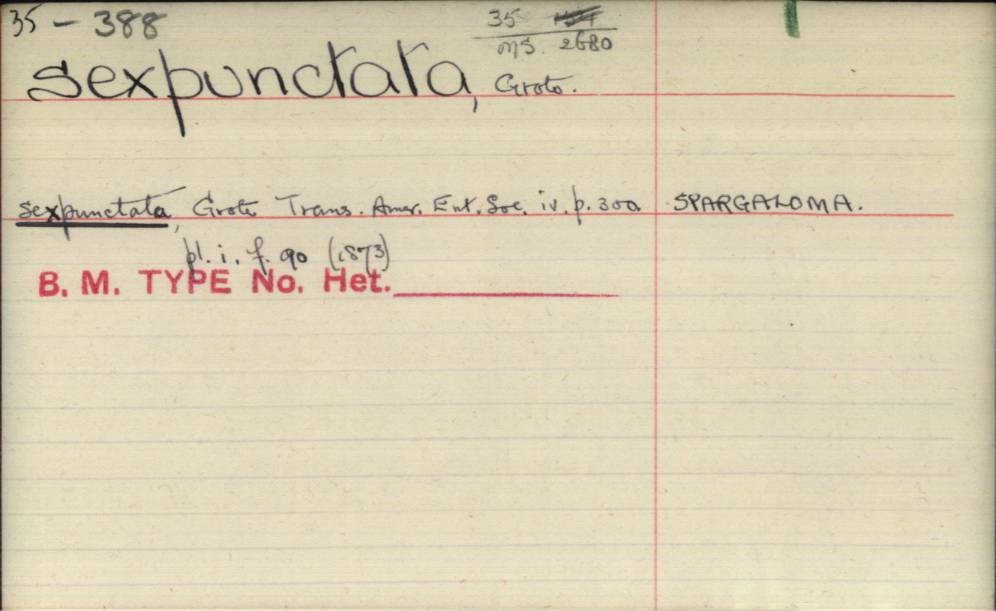 35 - 388
35
MS. 2680
sexpunctata, Grote.
sexpunctata, Grote Trans. Amer. Ent. Soc. iv. p. 300 SPARGALOMA.
pl. i. f. 90 (1873)
B. M. TYPE No. Het.